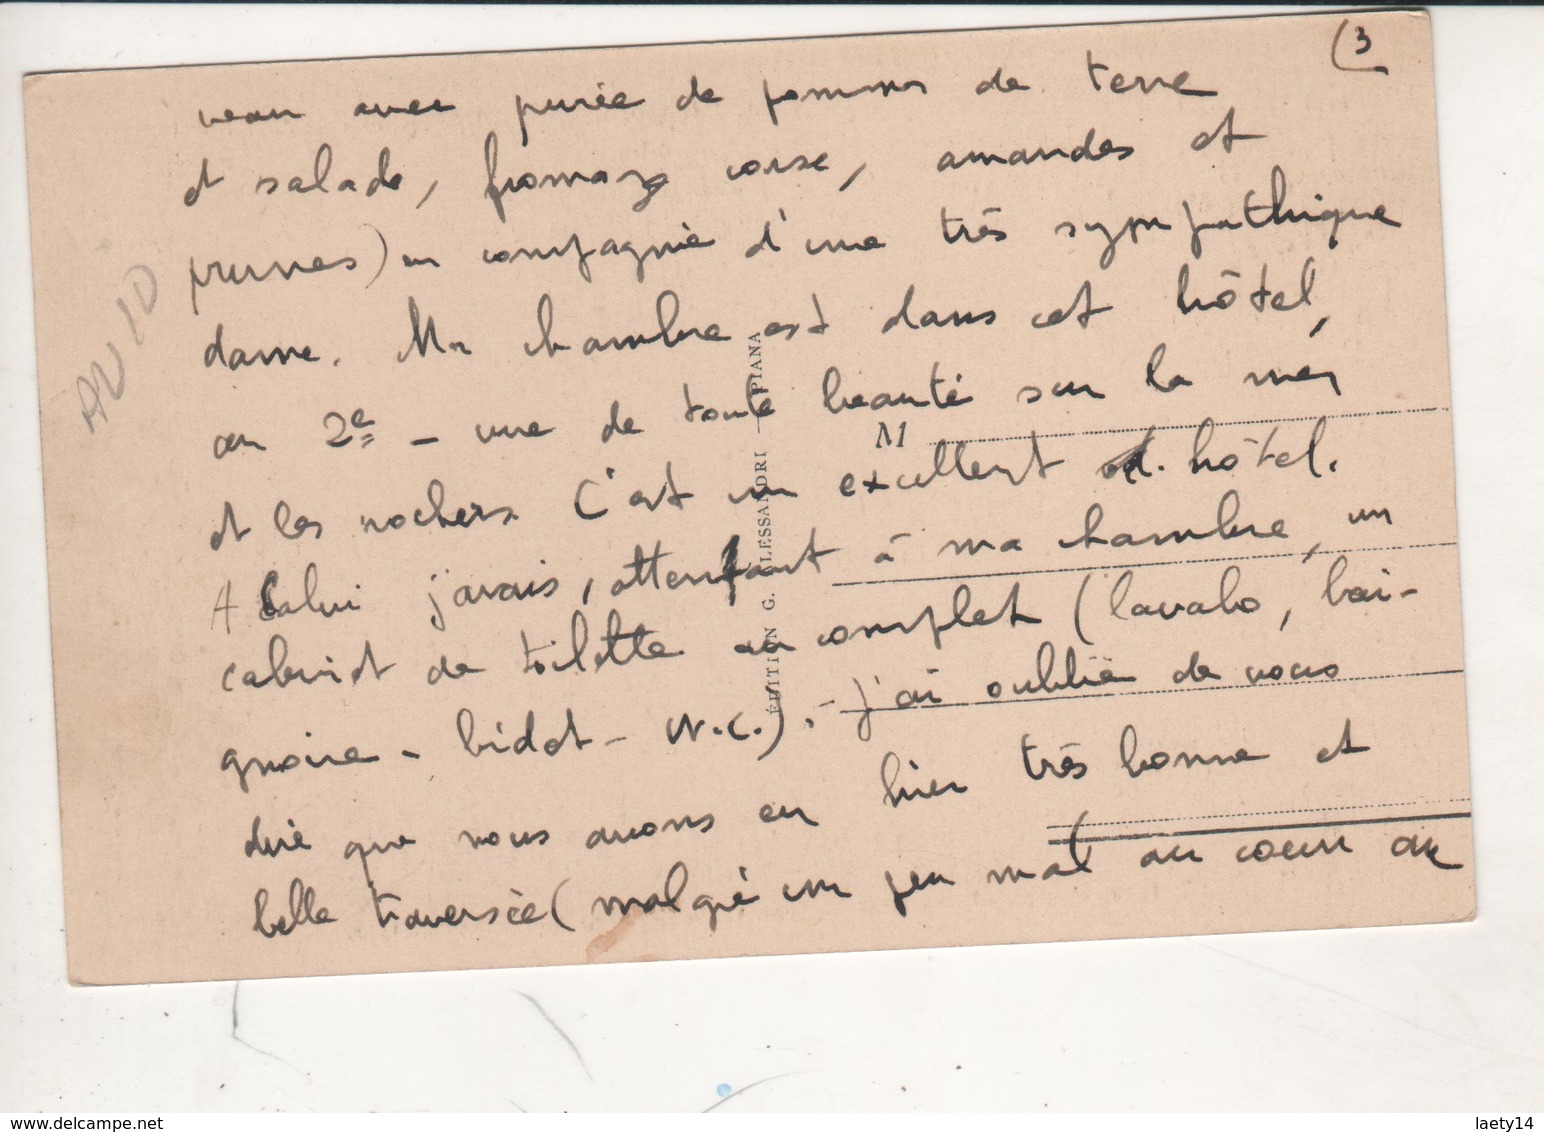 (3
veau avec purée de pommes de terre
et salade, fromage corse, amandes et
prunes) en compagnie d'une très sympathique
dame. Ma chambre est dans cet hôtel,
au 2e - vue de toute beauté sur la mer
et les rochers. C'est un excellent hôtel.
A Calvi j'avais, attenant à ma chambre, un
cabinet de toilette au complet (lavabo, bai-
gnoire - bidet - W.C.). - J'ai oublié de vous
dire que nous avons eu hier très bonne et
belle traversée (malgré un peu mal au cœur au
M
ÉDITION G. ALESSANDRI - PIANA
AV 10
delcampe.net
laety14